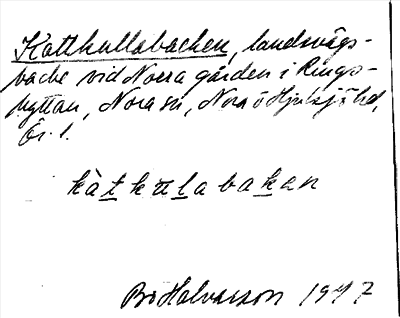 Kattkullabacken, landsvägs-
backe vid Norra gården i Rings-
hyttan, Nora sn, Nora o Hjulsjö hd,
Ör. l.
kàtkulabakan
Bo Halvarson 1947